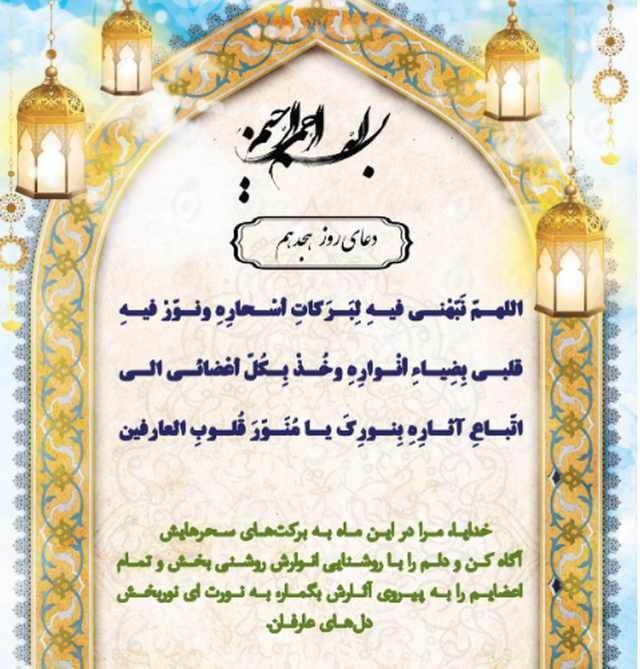 بسم الله الرحمن الرحیم
دعای روز هجدهم
اللهمّ نَبّهْنی فیهِ لِبَرَکاتِ أسْحارِهِ ونوّرْ فیهِ
قلبی بِضِیاءِ أنْوارِهِ وخُذْ بِکُلّ أعْضائی الی
اتّباعِ آثارِهِ بِنورِکَ یا مُنَوّرَ قُلوبِ العارفین
خدایا، مرا در این ماه به برکت‌های سحرهایش
آگاه کن و دلم را با روشنایی انوارش روشنی بخش و تمام
اعضایم را به پیروی آثارش بگمار، به نورت ای نوربخش
دل‌های عارفان.